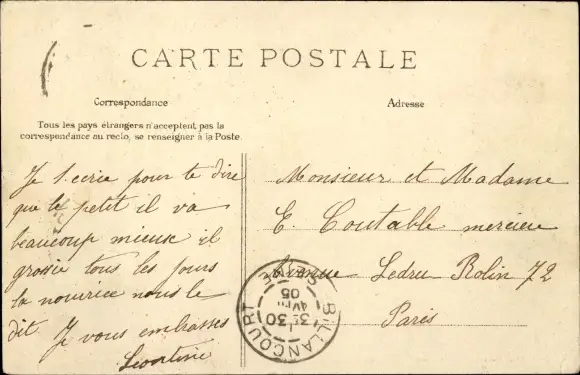 CARTE POSTALE
Correspondance
Adresse
Tous les pays étrangers n'acceptent pas la
correspondance au recto, se renseigner à la Poste.
Je t'ecrie pour te dire
que le petit il va
beaucoup mieux il
grossie tous les jours
la nourrice nous le
dit Je vous embrasses
Leontine
Monsieur et Madame
E. Coutable mercier
Avenue Ledru Rolin 72
Paris
BILLANCOURT
SEINE
3E 30
AVRIL
05